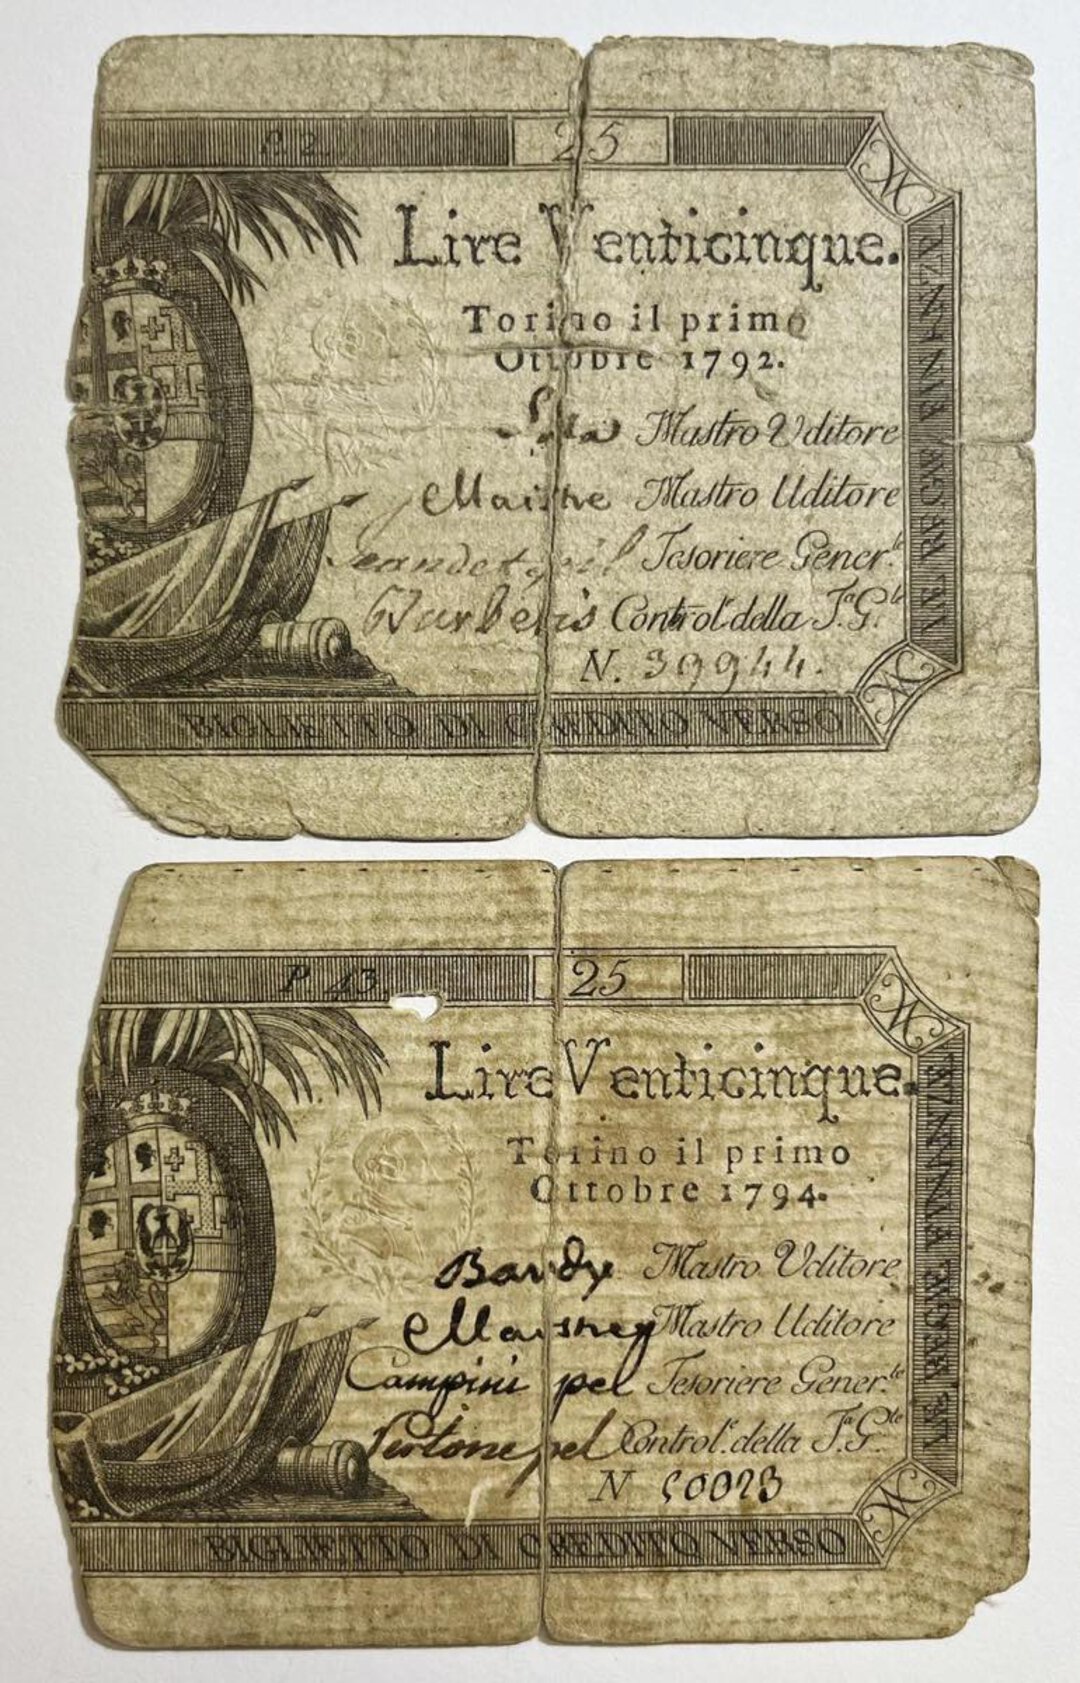 P. 2.
25
Lire Venticinque.
Torino il primo
Ottobre 1792.
Mastro Uditore
Maistre Mastro Uditore
Tesoriere Gener.le
Controlr. della T.a G.le
N. 39944.
BIGLIETTO DI CREDITO VERSO
LE REGIE FINANZE
P. 43.
25
Lire Venticinque.
Torino il primo
Ottobre 1794.
Mastro Uditore
Mastro Uditore
Campini pel Tesoriere Gener.le
pel Controlr. della T.a G.le
N
BIGLIETTO DI CREDITO VERSO
LE REGIE FINANZE